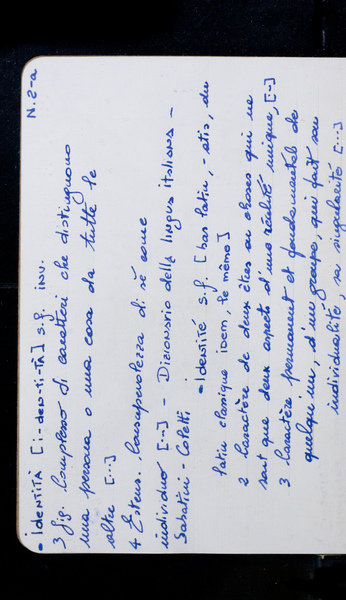 N.2-a
• IDENTITÀ [i-den-ti-TÀ] s.f. inv.
3 fig. Complesso di caratteri che distinguono
una persona o una cosa da tutte le
altre [...]
4 Estens. Consapevolezza di sé come
individuo [...] - Dizionario della lingua italiana -
Sabatini - Coletti
• IDENTITÉ s.f. [bas latin, - atis, du
latin classique IDEM, le même]
2 Caractère de deux êtres ou choses qui ne
sont que deux aspects d'une réalité unique, [...]
3 Caractère permanent et fondamental de
quelqu'un, d'un groupe, qui fait son
individualité, sa singularité [...]